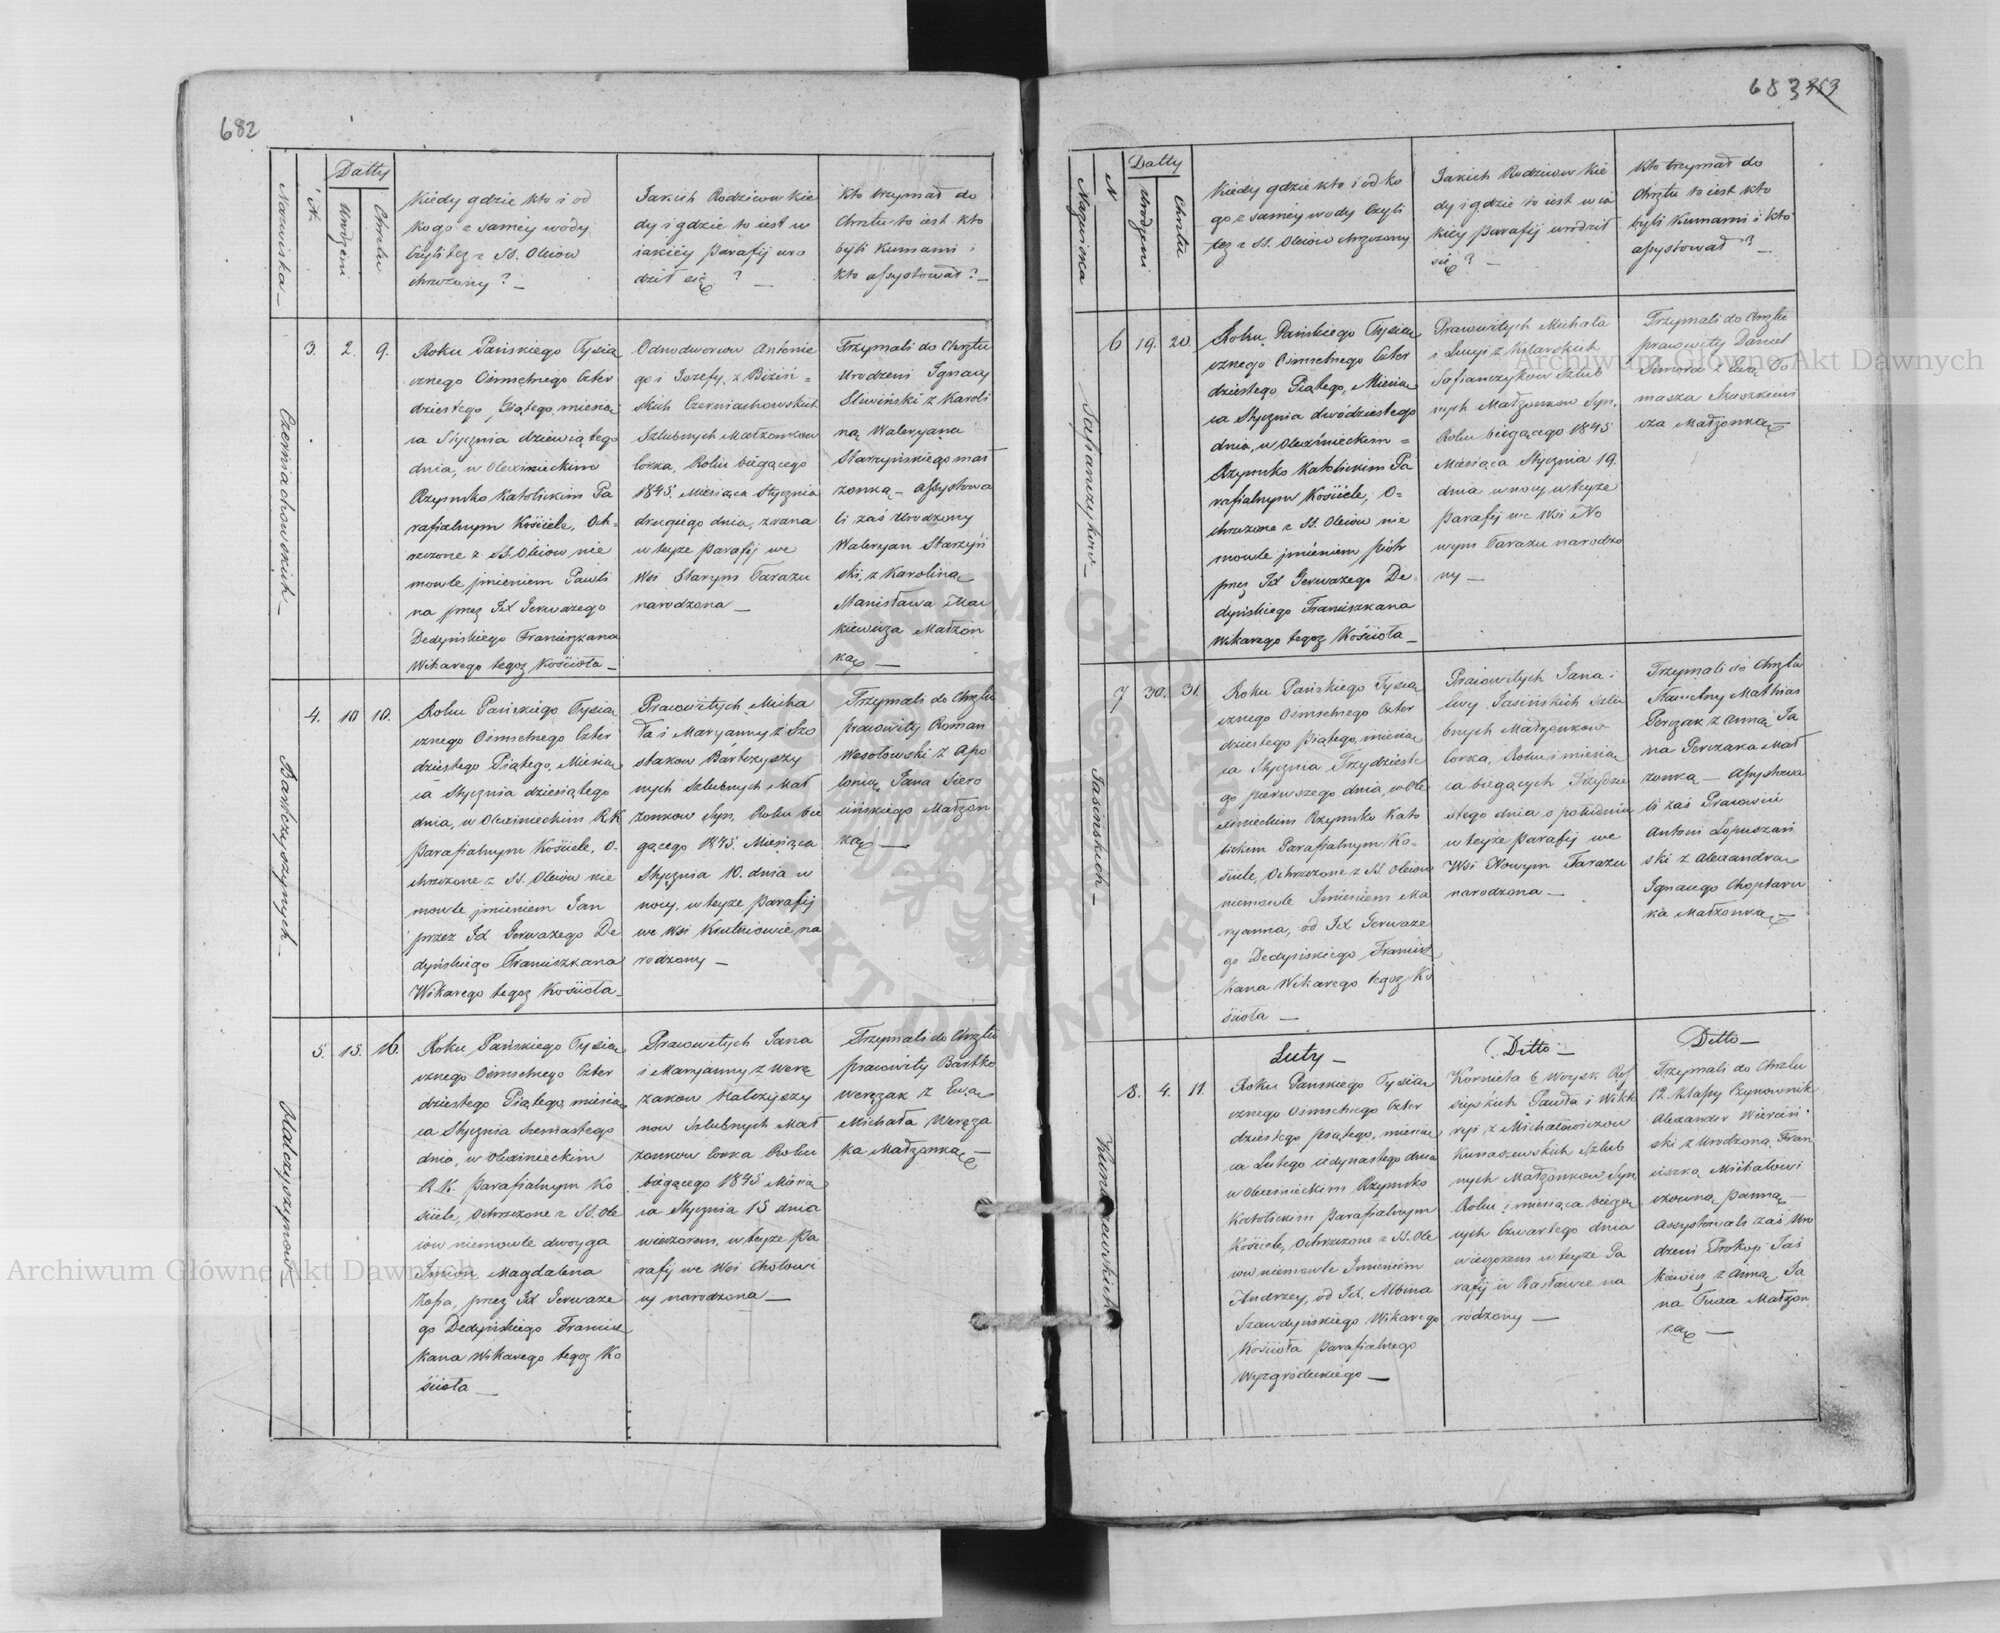 682
Nazwiska
N.
Datty
Urodzeni
Chrztu
Kiedy gdzie kto i od
kogo z samey wody
Czyli też z SS. Oleiow
chrzczony? —
Jakich Rodziców Kie
dy i gdzie to iest w
iakiéy Parafij uro
dził się? —
Kto trzymał do
Chrztu to iest kto
byli Kumami i
kto assystował? —
Czerniachowskich —
3. 2. 9.
Roku Pańskiego Tysią
cznego Ośmsetnego Czter
dziestego Piątego, miesią
ca Stycznia dziewiątego
dnia, w Olexinieckim
Rzymsko Katolickim Pa
rafialnym Kościele, Och=
rzczone z SS. Oleiow nie
mowle jmieniem Pauli
na przez JX Gerwazego
Dedyńskiego Franciszkana
Wikarego tegoż Kościoła —
Odnodworcow Antonie
go i Jozefy z Biziń=
skich Czerniachowskich
Szlubnych Małżonkow
Corka, Roku biegącego
1845. Miesiąca Stycznia
drugiego dnia, z rana
w teyże Parafij we
Wsi Starym Tarażu
narodzona —
Trzymali do Chrztu
Urodzeni Ignacy
Sliwiński z Karoli
ną Waleryana
Starzyńskiego mał
żonką — assystowa
li zaś Urodzony
Waleryan Starzyń
ski, z Karoliną
Stanisława Mac
kiewicza Małżon
ką —
Bartczyszynych —
4. 10 10.
Roku Pańskiego Tysią
cznego Ośmsetnego Czter
dziestego Piątego, Miesią
ca Stycznia dziesiątego
dnia, w Olexinieckim R. K
Parafialnym Kościele, O-
chrzczone z SS. Oleiow nie
mowle jmieniem Jan
przez JX Gerwazego De
dyńskiego Franciszkana
Wikarego tegoż Kościoła —
Pracowitych Micha
ła i Maryanny z Szo
stakow Bartczyszy
nych Szlubnych Mał
żonkow Syn, Roku bie
gącego 1845. Miesiąca
Stycznia 10. dnia w
nocy, w teyże Parafij
we Wsi Krutniowie na
rodzony —
Trzymali do Chrztu
pracowity Roman
Wesołowski z Apo
lonią Jana Siero
cińskiego Małżon
ką —
Halczyszynow —
5. 15. 16.
Roku Pańskiego Tysią
cznego Ośmsetnego Czter
dziestego Piątego, miesią
ca Stycznia szesnastego
dnia, w Olexinieckim
R. K. Parafialnym Ko
ściele, Ochrzczone z SS. Ole
iow niemowle dwoyga
Imion Magdalena
Zofia, przez JX Gerwaze
go Dedyńskiego Francisz
kana Wikarego tegoż Ko
ścioła —
Pracowitych Jana
i Maryanny z Werę
żakow Halczyszy
now Szlubnych Mał
żonkow Corka Roku
biegącego 1845 Miesią
ca Stycznia 15 dnia
wieczorem, w teyże Pa
rafij we Wsi Chołowi
cy narodzona —
Trzymali do Chrztu
pracowity Bartko
Werężak z Ewą
Michała Weręża
ka Małżonką —
683 353
Nazwiska
N
Datty
Urodzeni
Chrztu
Kiedy gdzie kto i od ko
go z saméy wody Czyli
też z SS. Oleiow chrzczony
Jakich Rodzicow Kie
dy i gdzie to iest w ia
kiey Parafij urodził
się? —
Kto trzymał do
Chrztu to iest kto
byli Kumami i kto
assystował? —
Safianczykow —
6 19. 20
Roku Pańskiego Tysią
cznego Ośmsetnego Czter
dziestego Piątego, Miesią
ca Stycznia dwódziestego
dnia, w Olexinieckim =
Rzymsko Katolickim Pa
rafialnym Kościele, O=
chrzczone z SS. Oleiow nie
mowle jmieniem Piotr
przez JX Gerwazego De
dyńskiego Franciszkana
Wikarego tegoż Kościoła —
Pracowitych Michała
i Łucyi z
Safianczykow Szlub
nych Małżonkow Syn,
Roku biegącego 1845
Miesiąca Stycznia 19.
dnia w nocy w teyże
Parafij we Wsi No
wym Tarażu narodzo
ny —
Trzymali do Chrztu
pracowity Daniel
z Ewą To
masza
cza Małżonką —
Jasińskich —
7 30. 31.
Roku Pańskiego Tysią
cznego Ośmsetnego Czter
dziestego Piątego, miesią
ca Stycznia Trzydzieste
go pierwszego dnia, w Ole
xinieckim Rzymsko Kato
lickim Parafialnym Ko-
ściele, Ochrzczone z SS. Oleiow
niemowle Imieniem Ma
ryanna, od JX Gerwaze
go Dedyńskiego Francisz
kana Wikarego tegoż Ko
ścioła —
Pracowitych Jana i
Ewy Jasińskich Szlu
bnych Małżonkow
Corka, Roku i miesią
ca biegących Trzydzie
stego dnia o południu
w teyże Parafij we
Wsi Nowym Tarażu
narodzona —
Trzymali do Chrztu
Mathias
Perczak z Anną Ja
na Perczaka Mał
żonką — Assystowa
li zaś Pracowici
Antoni Łopuszań
ski z Alexandrą
Ignacego Choptaru
ka Małżonką —
Kunaszewskich
Luty —
8. 4. 11.
Roku Pańskiego Tysią
cznego Ośmsetnego Czter
dziestego piątego, miesią
ca Lutego iedynastego dnia
w Olexinieckim Rzymsko
Katolickim Parafialnym
Kościele, Ochrzczone z SS. Ole
iow niemowle Imieniem
Andrzey, od JX. Albina
Szawdyńskiego Wikarego
Kościoła Parafialnego
Wyżgródeckiego —
Ditto —
Korneta b. Woysk Ros
siyskich Pawła i Wikto
ryi z Michałowiczow
Kunaszewskich Szlub
nych Małżonkow Syn
Roku i miesiąca biegą
cych Czwartego dnia
wieczorem w teyże Pa
rafij w Rastawce na
rodzony —
Ditto —
Trzymali do Chrztu
12. Klassy Czynownik
Alexander Wierciń
ski z Urodzoną Fran
ciszką Michałowi
czowną panną —
Assystowali zaś Uro
dzeni Prokop Jaś
kiewicz z Anną Ja
na Tuza Małżon
ką —
Archiwum Główne Akt Dawnych
Archiwum Główne Akt Dawnych
ARCHIWUM GŁÓWNE AKT DAWNYCH